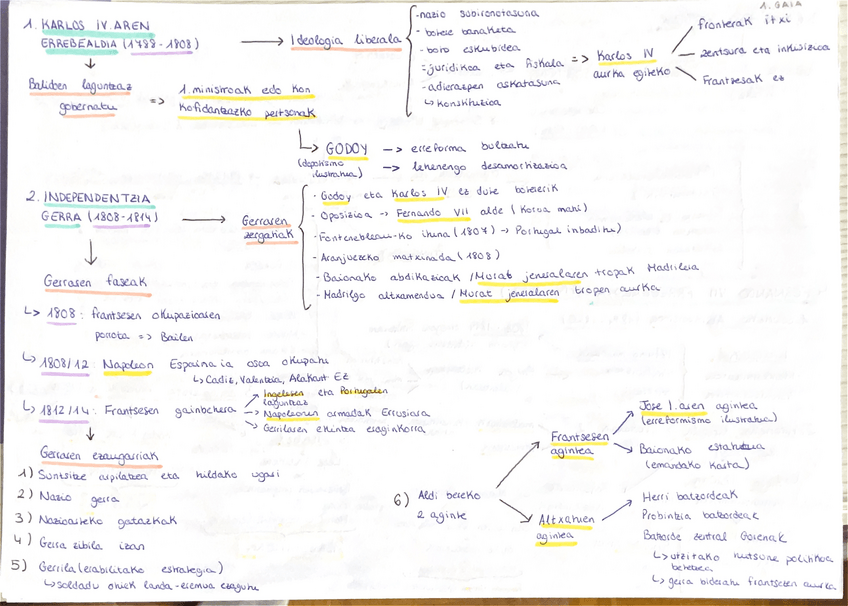 1. GAIA
1. KARLOS IV.AREN
ERREGEALDIA (1788-1808)
Ideologia liberala
- nazio subironotasuna
- botere banaketa
- boto eskubidea
- juridikoa eta fiskala
- adierazpen askatasuna
↳ Konstituzioa
=> Karlos IV
aurka egiteko
fronterak itxi
zentsura eta inkisizioa
Frantsesak ez
Baliden laguntzaz
gobernatu
=> 1. ministroak edo kon
kofidantzazko pertsonak
↳ GODOY
(depotismo
ilustratua)
--> erreforma bultzatu
--> lehenengo desamortizazioa
2. INDEPENDENTZIA
GERRA (1808-1814)
Gerraren
zergatiak
- Godoy eta Karlos IV ez dute botererik
- Oposizioa -> Fernando VII alde (Koroa nahi)
- Fontenebleau-ko ituna (1807) -> Portugal inbaditu)
- Aranjuezeko matxinada (1808)
- Baionako abdikazioak / Murat jeneralaren tropak Madrilera
- Madrilgo altxamendua / Murat jeneralaren tropen aurka
Gerraren faseak
↳ 1808: frantsesen okupazioaren
porrota => Bailen
↳ 1808/12: Napoleon Espainia osoa okupatu
↳ Cadiz, Valentzia, Alakant EZ
↳ 1812/14: Frantsesen gainbehera
Ingelesen eta Portugalen
laguntzaz
Napoleonen armadak Errusiara
Gerrilaren ekintza eraginkorra
Gerraren ezaugarriak
1) Suntsitze arpilatzea eta hildako ugari
2) Nazio gerra
3) Nazioarteko gatazkak
4) Gerra zibila izan
5) Gerrila (erabilitako estrategia)
↳ soldadu ohiek landa-eremua ezagutu
6) Aldi bereko
2 aginte
Frantsesen
agintea
Jose I.aren agintea
(erreformismo ilustratua)
Baionako estatutua
(emandako karta)
Altxatuen
agintea
Herri batzordeak
Probintzia batzordeak
Batzorde zentral Gorenak
↳ utzitako hutsune politikoa
betetzea
↳ gerra bideratu frantsesen aurka